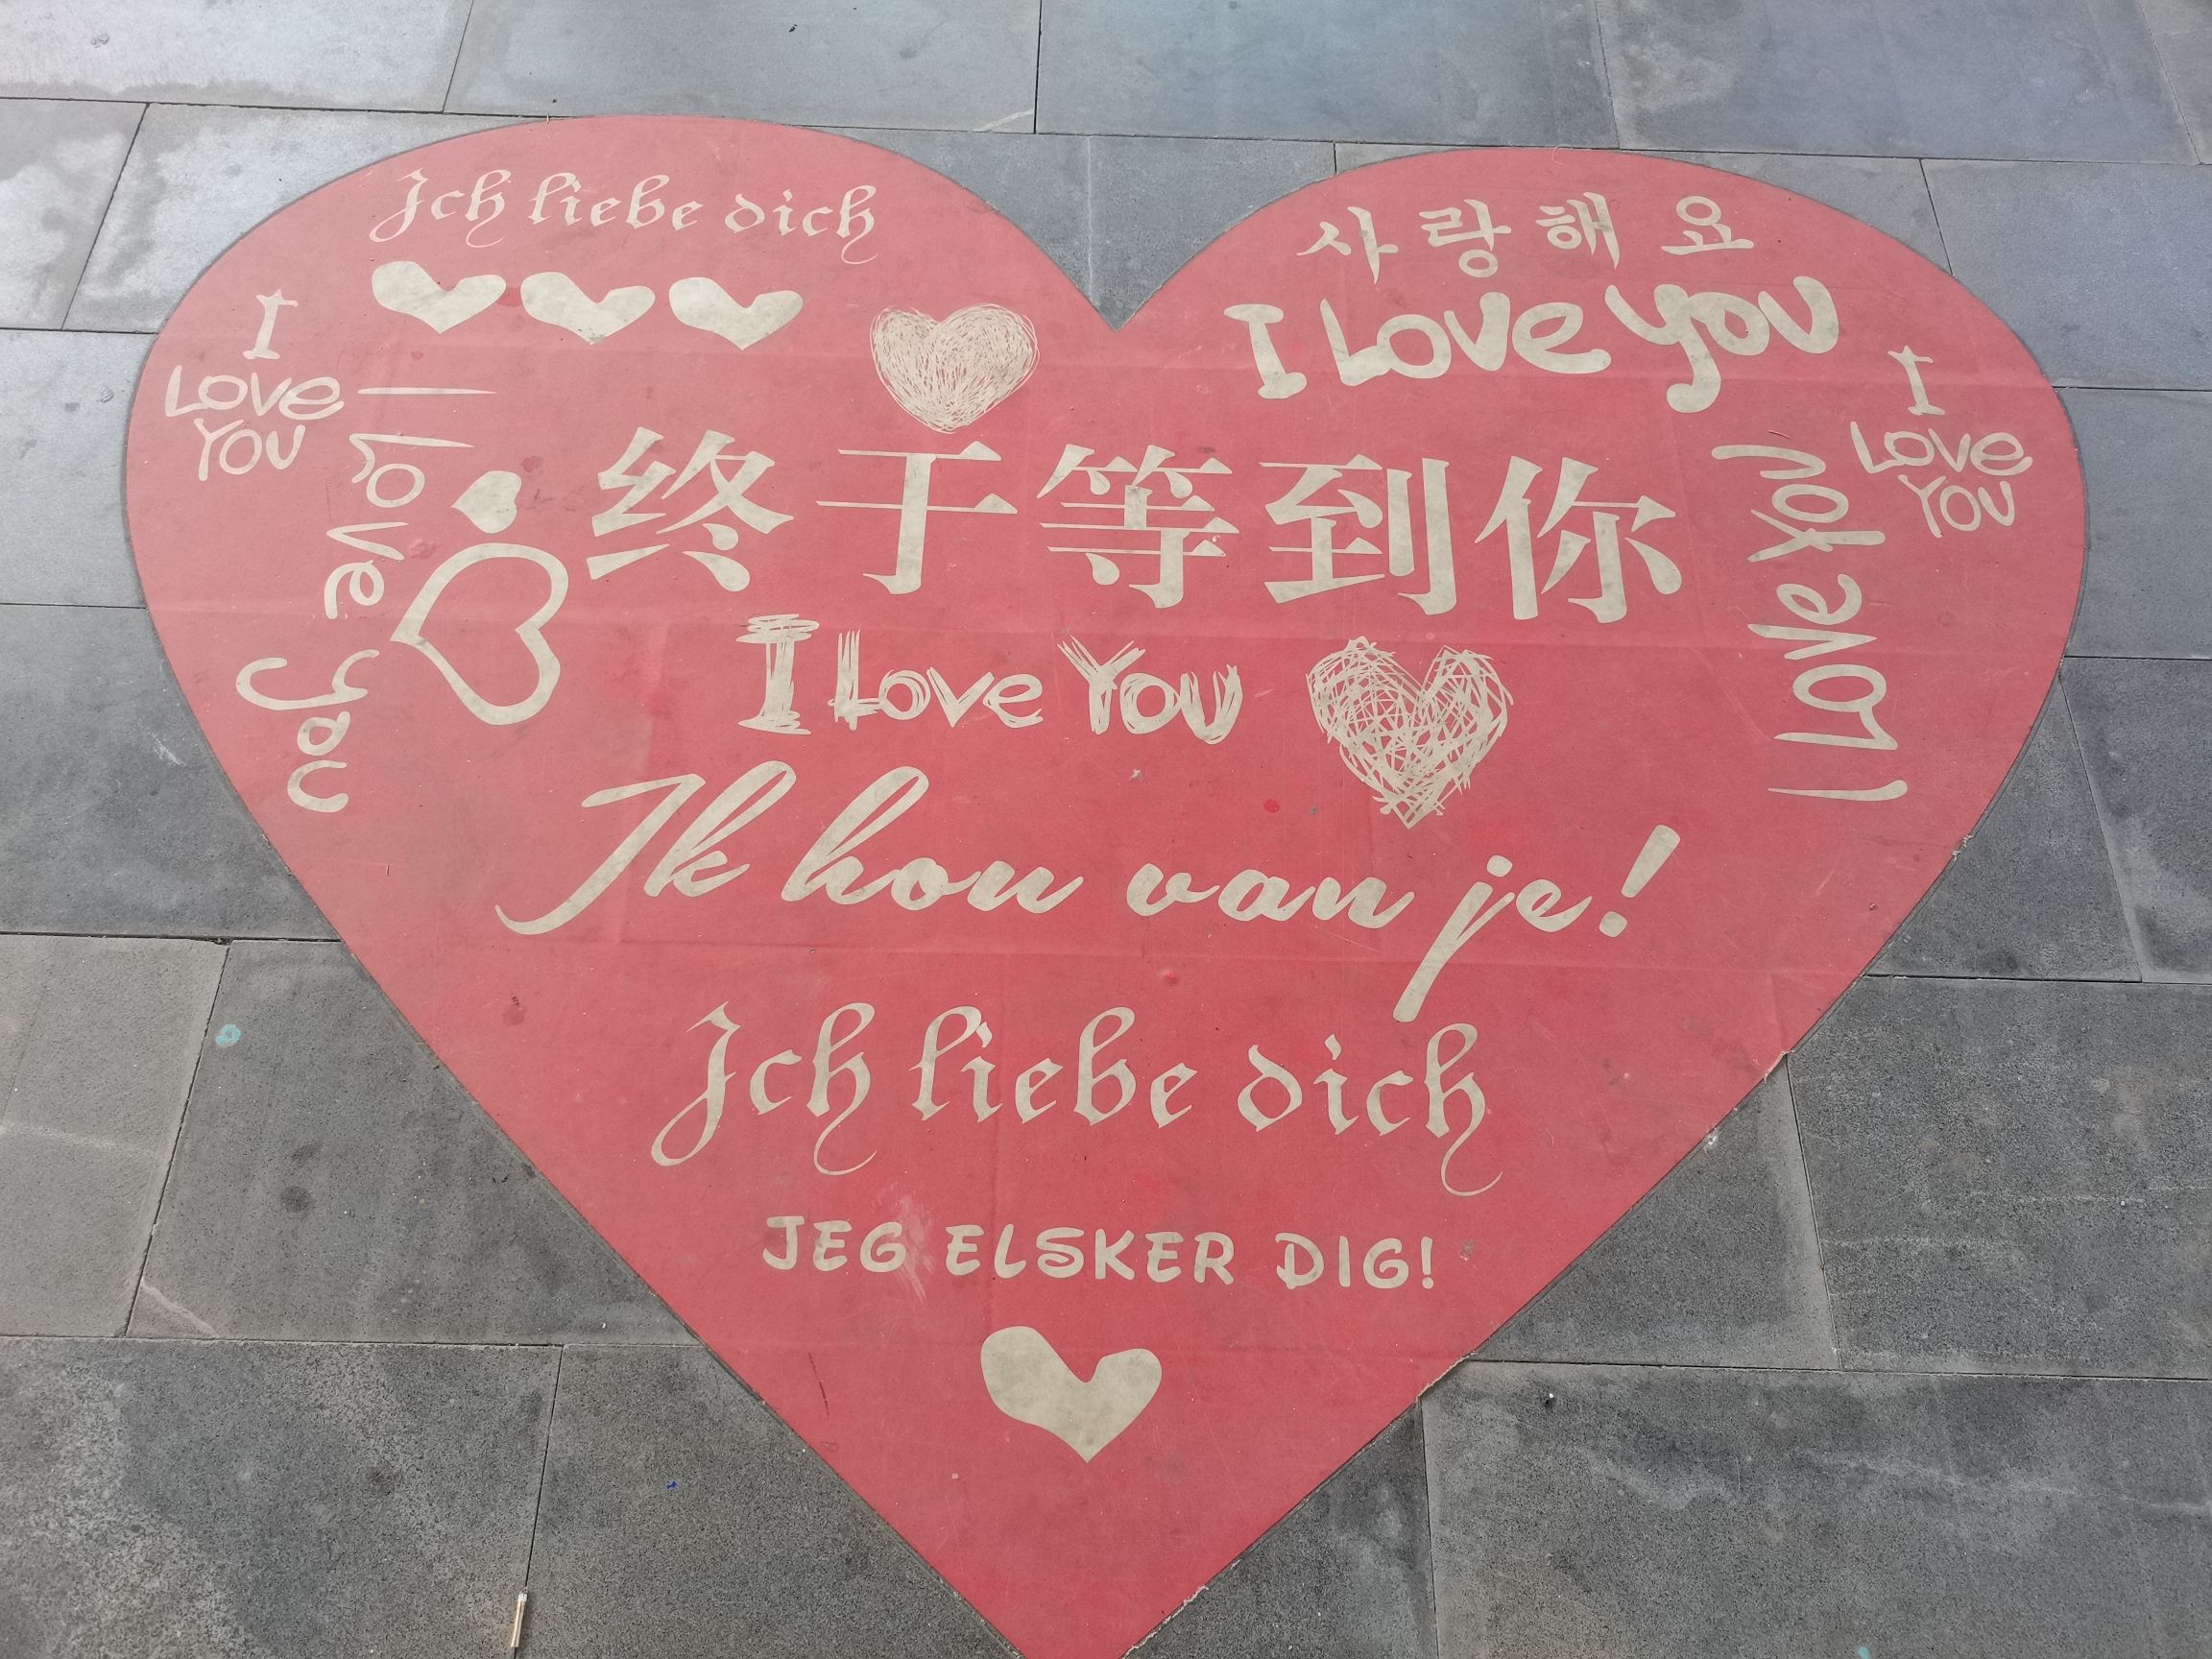 Ich liebe dich
사랑해요
I Love You
I
Love
You
I love you
I
Love
You
I Love You
终于等到你
I Love You
Ik hou van je!
Ich liebe dich
JEG ELSKER DIG!